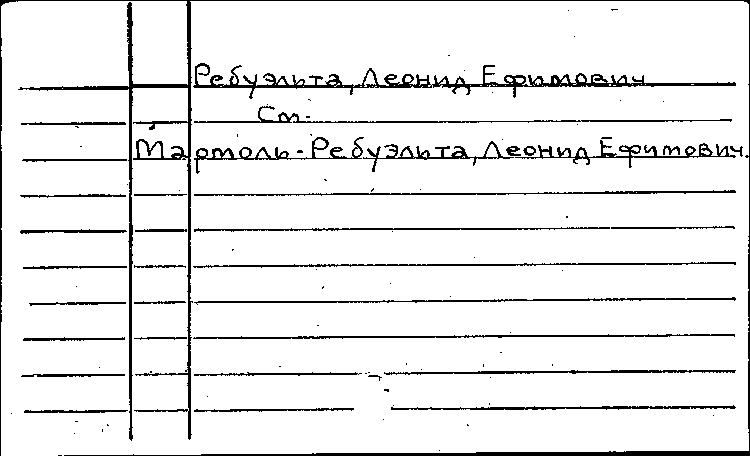 Ребуэльта, Леонид Ефимович
См.
Мармоль-Ребуэльта, Леонид Ефимович.